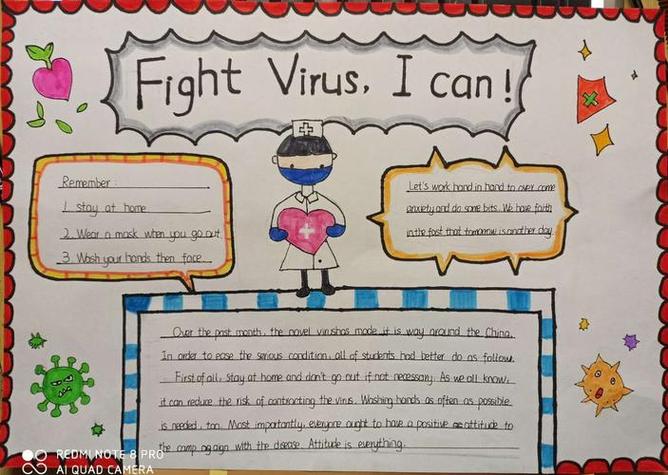 Fight Virus, I can!
Remember:
1. stay at home
2. Wear a mask when you go out
3. Wash your hands then face
Let's work hand in hand to over come
anxiety and do some bits. We have faith
in the fact that tomorrow is another day
Over the past month, the novel virus has made it is way around the China.
In order to ease the serious condition, all of students had better do as follow.
First of all, stay at home and don't go out if not necessary. As we all know,
it can reduce the risk of contracting the virus. Washing hands as often as possible
is needed, too. Most importantly, everyone ought to have a positive attitude to
the campaign with the disease. Attitude is everything.
REDMI NOTE 8 PRO
AI QUAD CAMERA